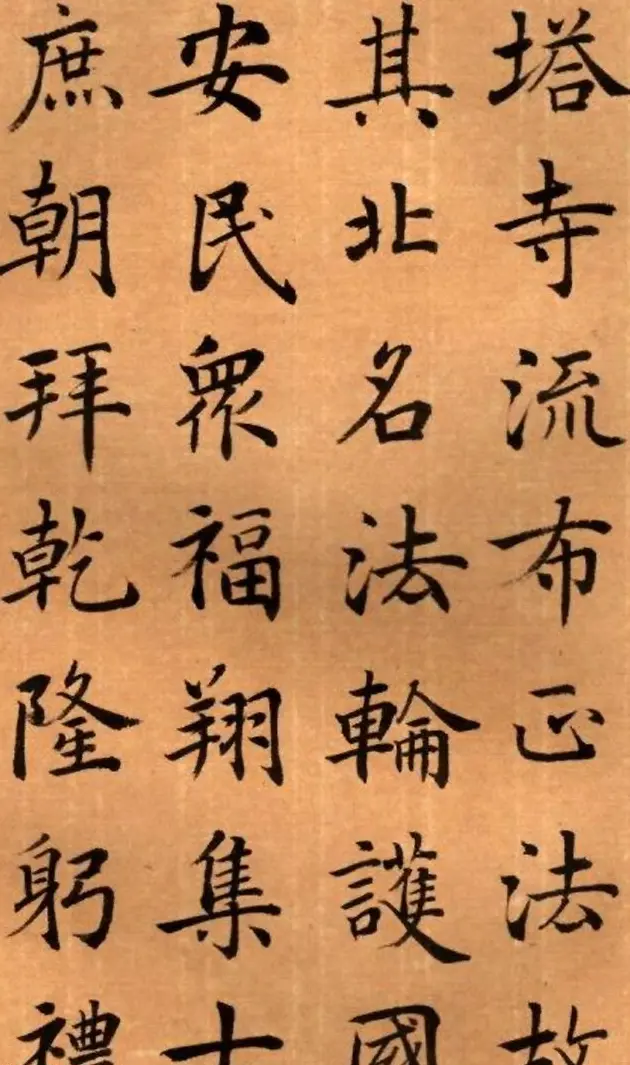 塔寺流布正法故
其北名法輪護國
安民衆福翔集士
庶朝拜乾隆躬禮